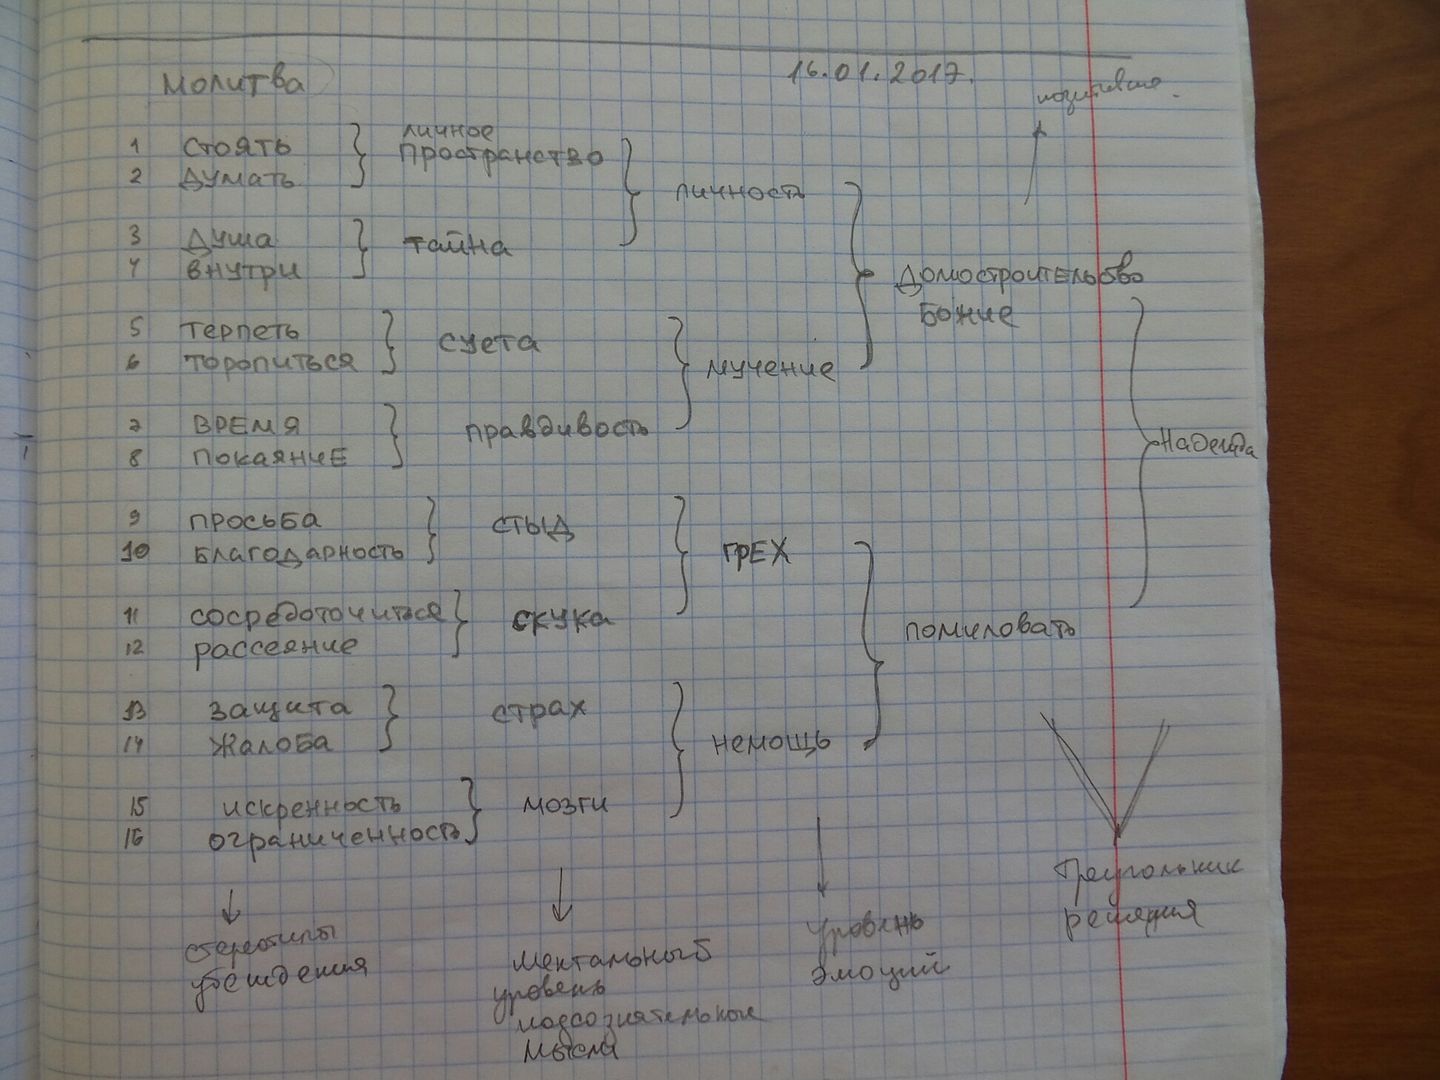 Молитва
16.01.2017.
позитивные.
1 стоять
2 думать
личное
пространство
личность
3 душа
4 внутри
тайна
Домостроительство
Божие
5 терпеть
6 торопиться
суета
мучение
7 ВРЕМЯ
8 покаяниЕ
правдивость
Надежда
9 просьба
10 благодарность
стыд
грех
11 сосредоточиться
12 рассеяние
скука
помиловать
13 защита
14 жалоба
страх
немощь
15 искренность
16 ограниченность
мозги
стереотипы
убеждения
ментальный
уровень
подсознательные
мысли
уровень
эмоций
Треугольник
решения